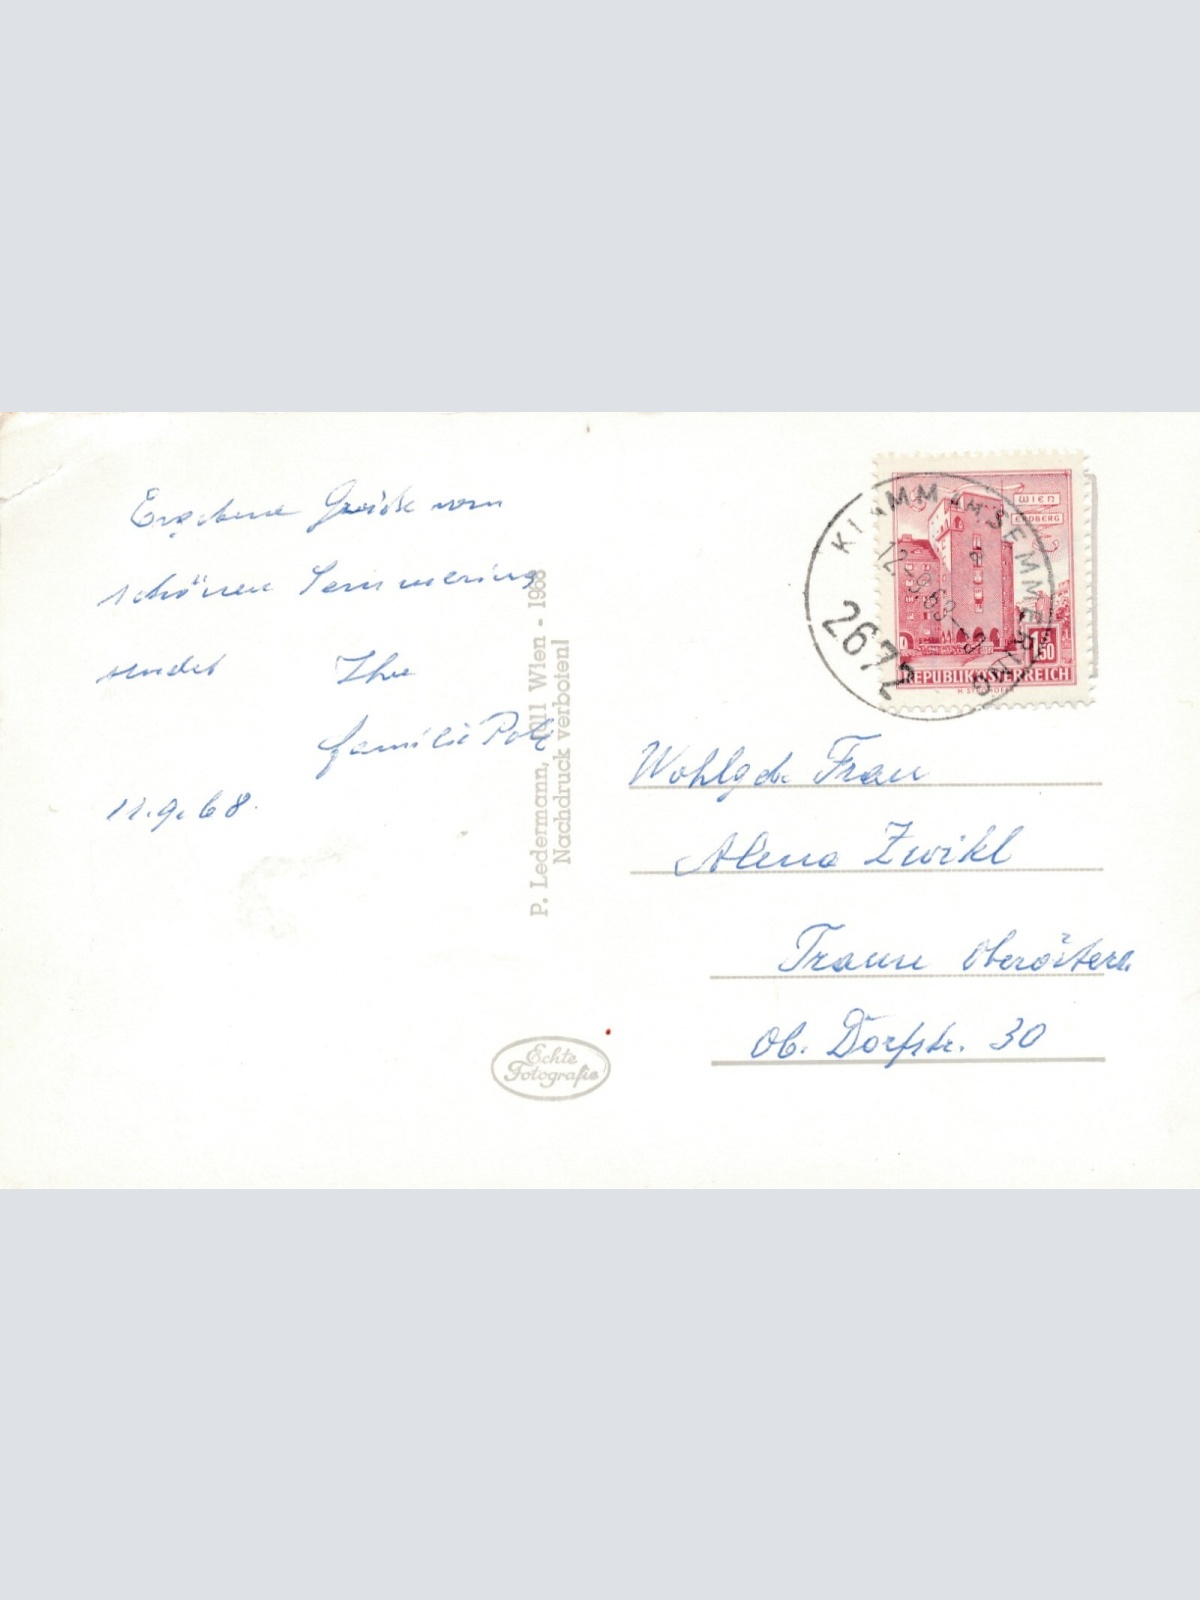 Ergebene Grüße vom
schönen Semmering
sendet Ihre
Familie
11.9.68.
P. Ledermann, 1011 Wien - 1968
Nachdruck verboten!
Echte
Fotografie
KLAMM AM SEMMERING
12.-9.68-
2672
WIEN
ERDBERG
1.50
REPUBLIK ÖSTERREICH
Wohlgeb. Frau
Alena Zwikl
Traun Oberösterr.
Ob. Dorfstr. 30